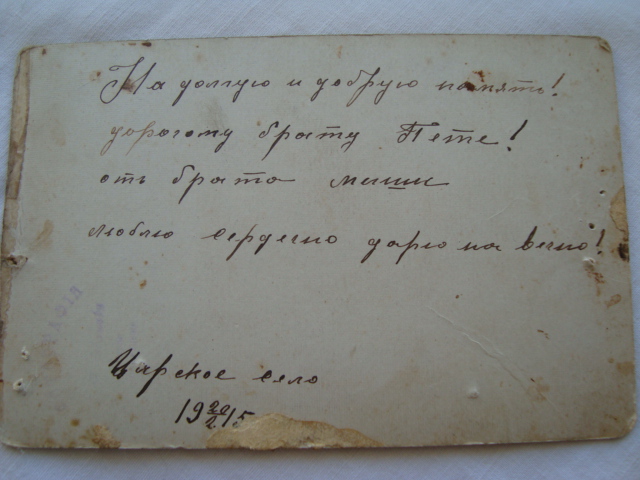 На долгую и добрую память!
дорогому брату Пете!
отъ брата миши
люблю сердечно дарю на вечно!
Царское село
19 20/2 15